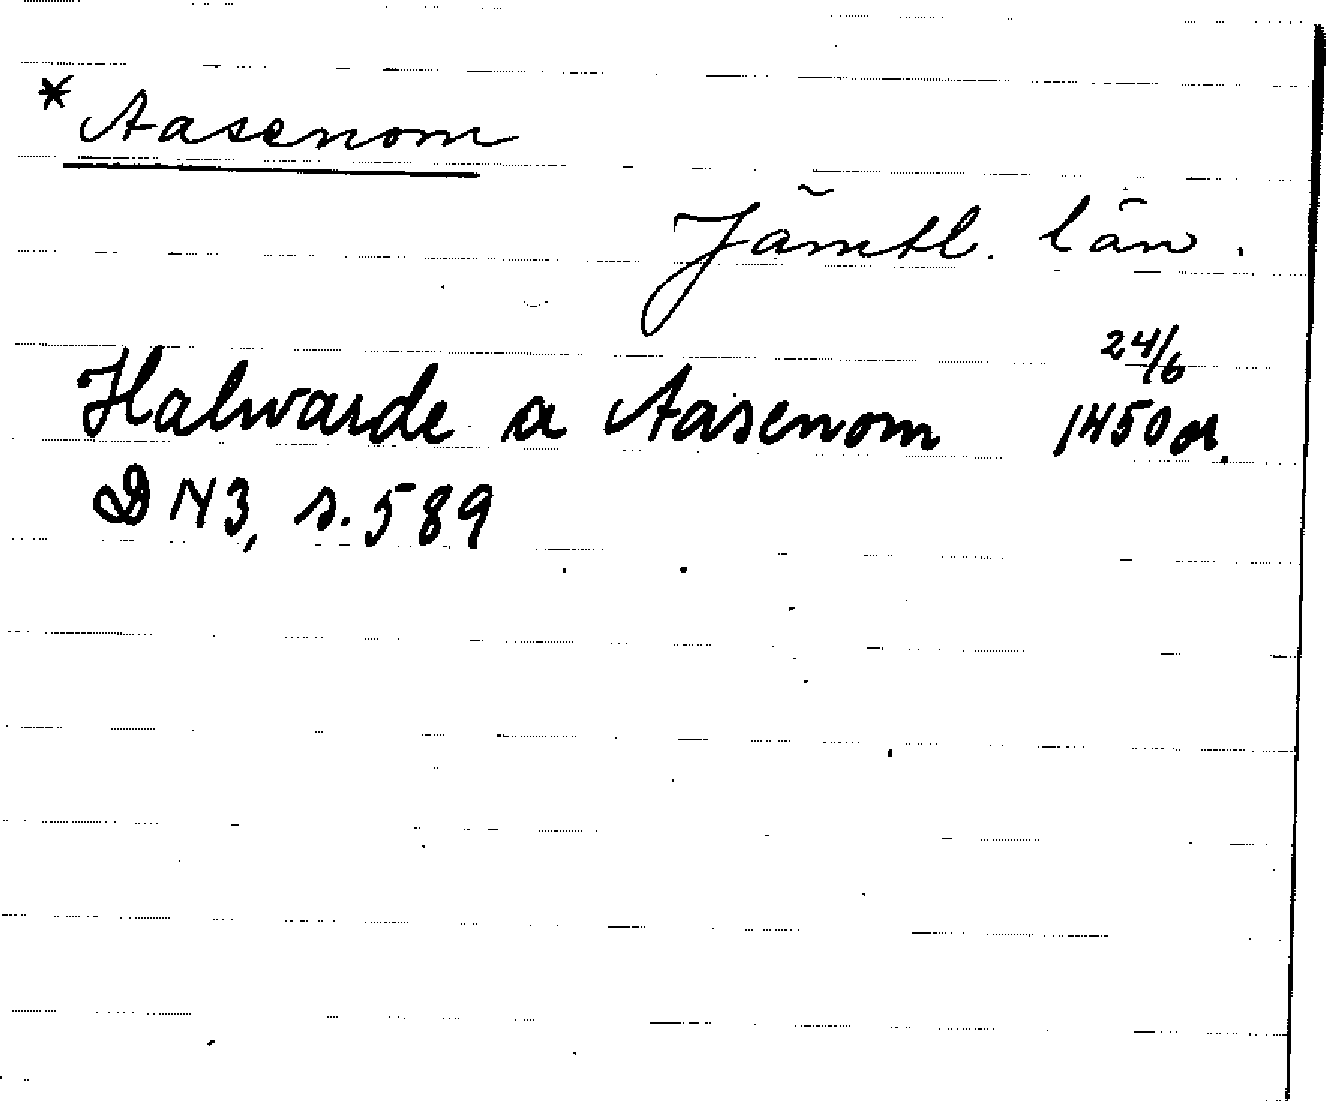 * Aasenom
Jämtl. län.
Halwarde a Aasenom 24/6 1450 or.
DN3, s. 589